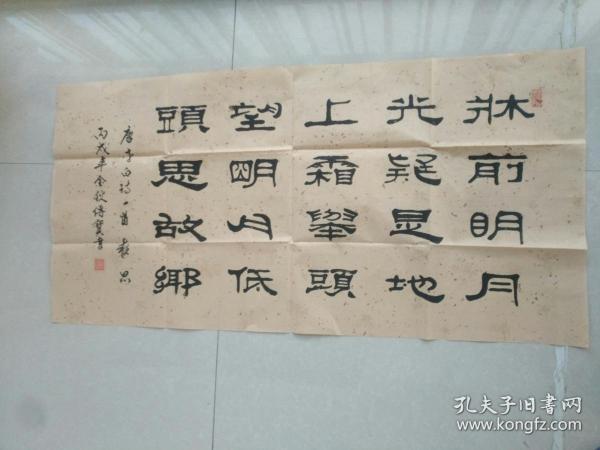 牀前明月
光疑是地
上霜舉頭
望明月低
頭思故鄉
唐李白詩一首 夜思
丙戌年金秋
孔夫子旧書网
www.kongfz.com